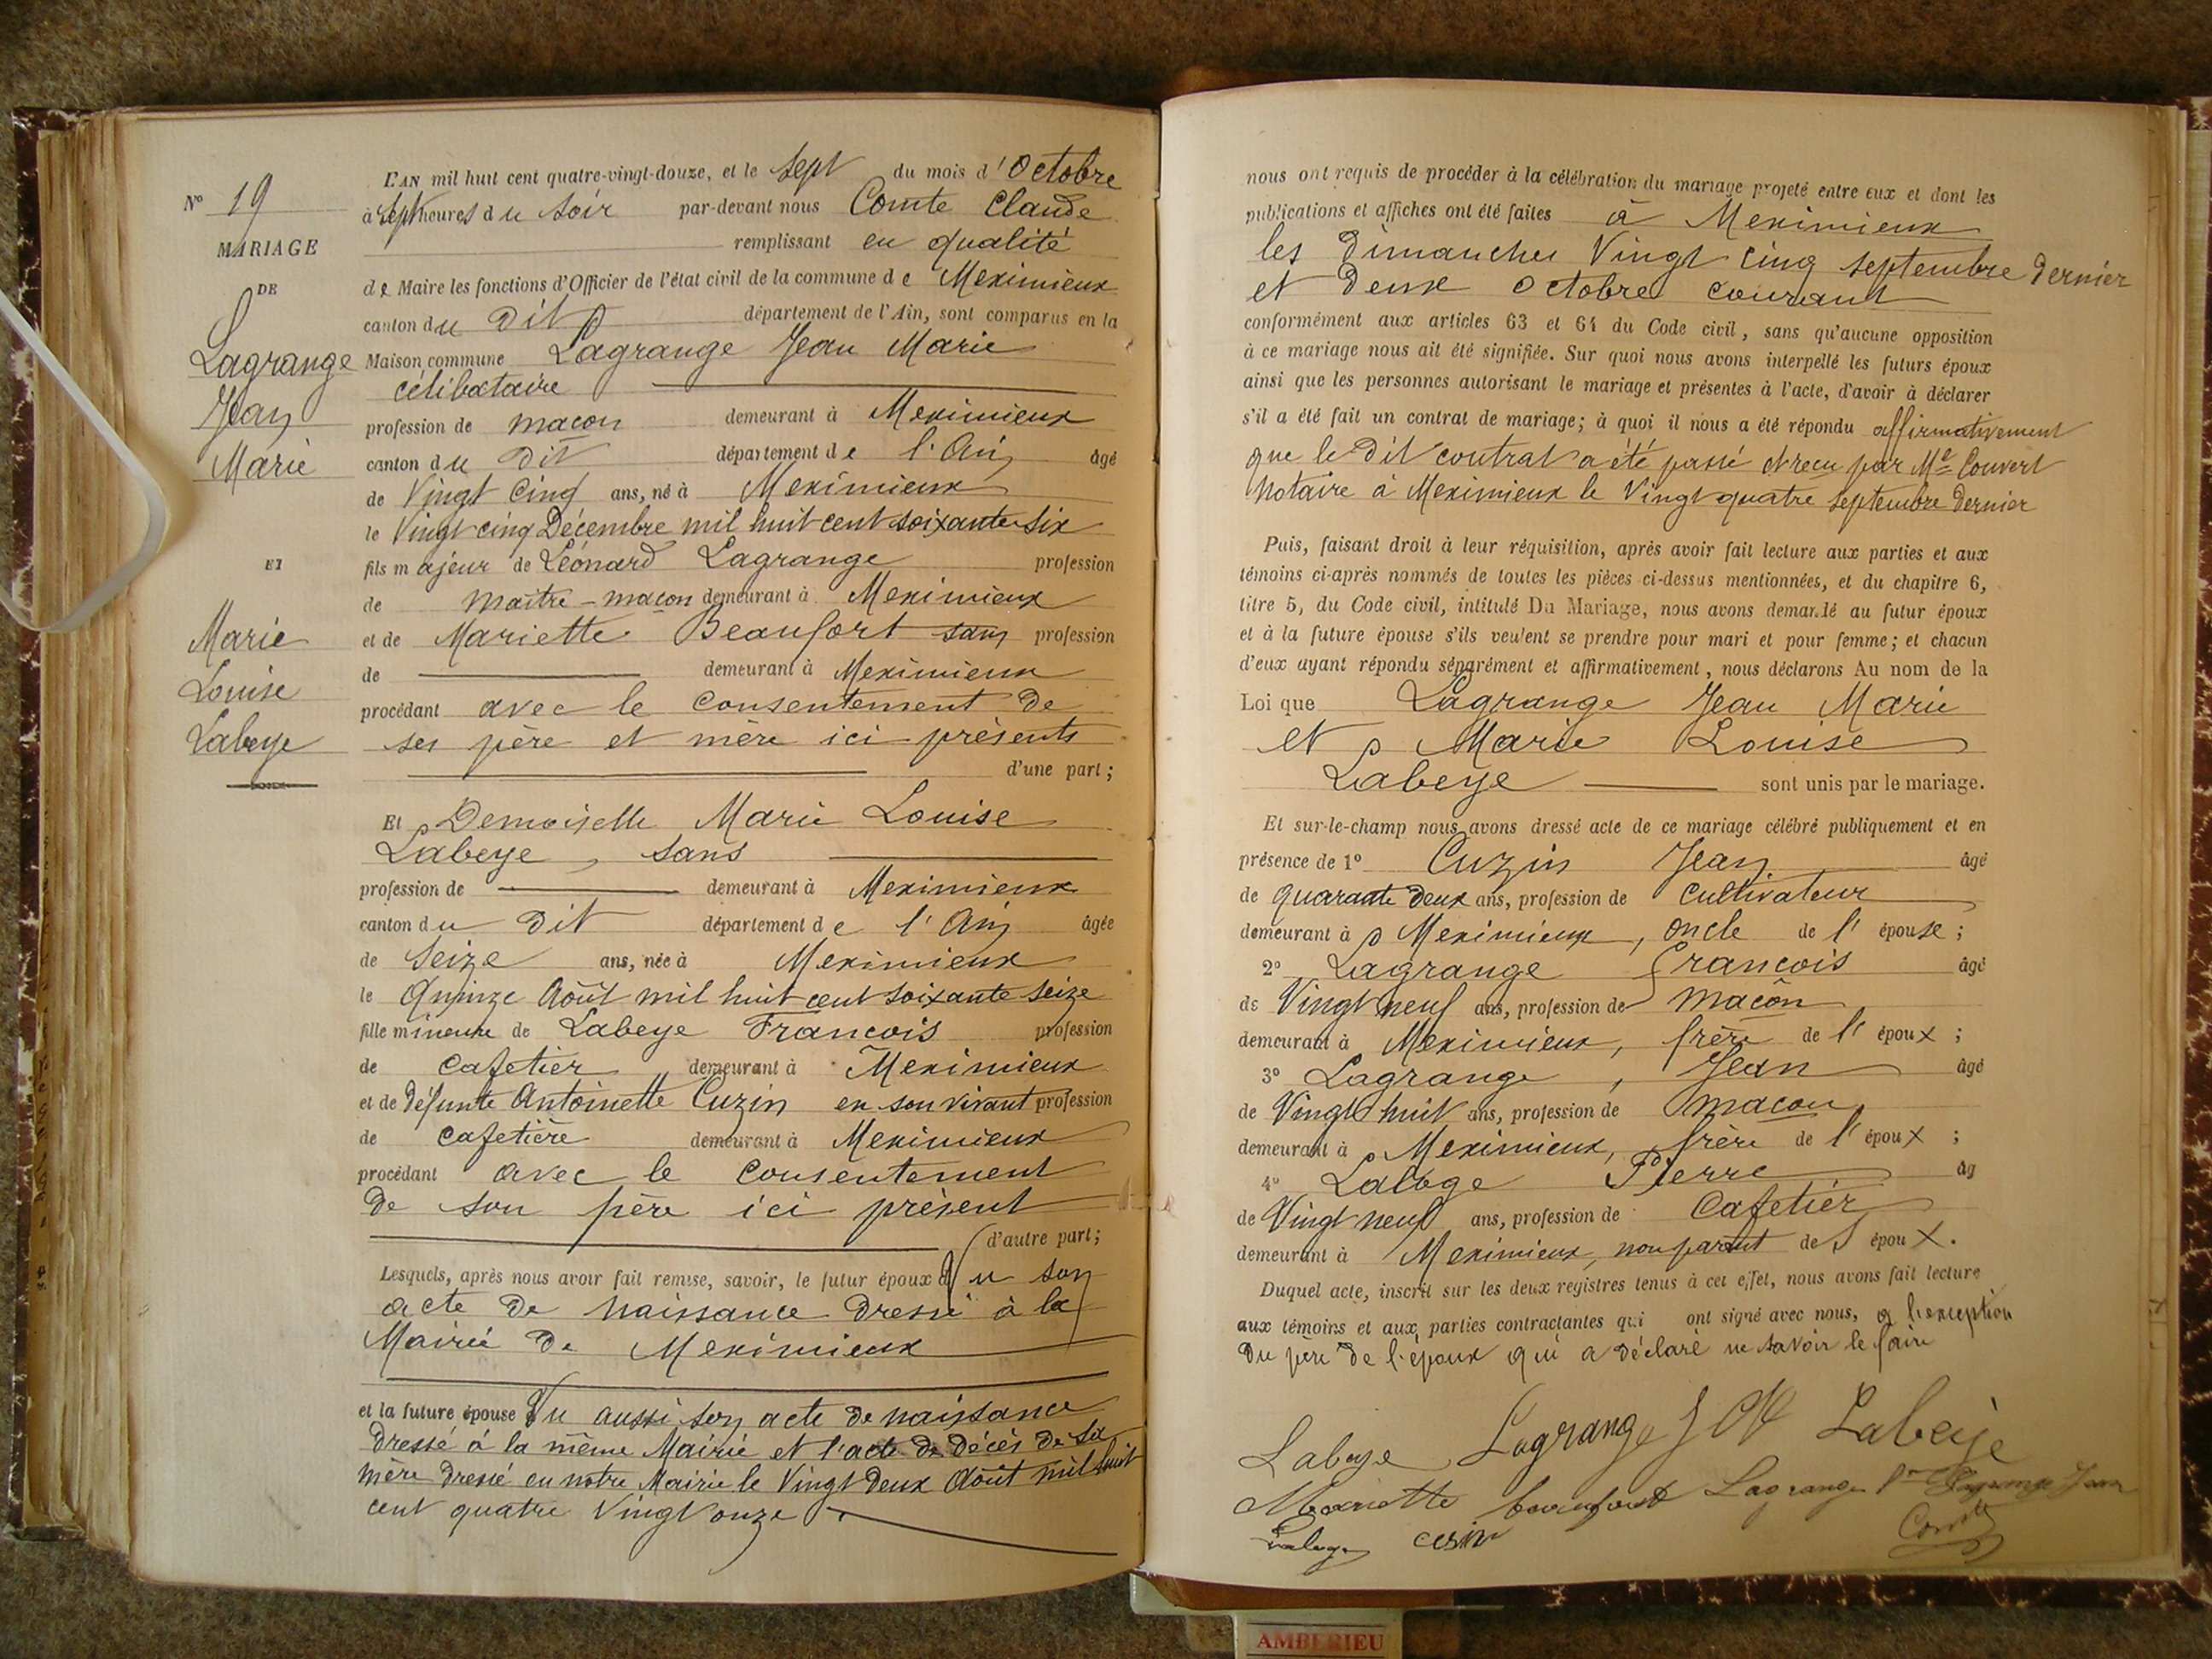 N° 19
MARIAGE
DE
Lagrange
Jean
Marie
ET
Marie
Louise
Labeye
L'AN mil huit cent quatre-vingt-douze, et le sept du mois d'Octobre
à sept heures du soir par-devant nous Comte Claude
remplissant en qualité
de Maire les fonctions d'Officier de l'état civil de la commune de Meximieux
canton du dit département de l'Ain, sont comparus en la
Maison commune Lagrange Jean Marie
célibataire
profession de maçon demeurant à Meximieux
canton du dit département de l'Ain âgé
de Vingt cinq ans, né à Meximieux
le Vingt cinq Décembre mil huit cent soixante six
fils majeur de Léonard Lagrange profession
de maître-maçon demeurant à Meximieux
et de Mariette Beaufort sans profession
de demeurant à Meximieux
procédant avec le consentement de
ses père et mère ici présents
d'une part;
Et Demoiselle Marie Louise
Labeye, sans
profession de demeurant à Meximieux
canton du dit département de l'Ain âgée
de Seize ans, née à Meximieux
le Quinze Août mil huit cent soixante seize
fille mineure de Labeye François profession
de cafetier demeurant à Meximieux
et de défunte Antoinette Cuzin en son vivant profession
de cafetière demeurant à Meximieux
procédant avec le consentement
de son père ici présent
d'autre part;
Lesquels, après nous avoir fait remise, savoir, le futur époux Vu son
acte de naissance dressé à la
Mairie de Meximieux
et la future épouse Vu aussi son acte de naissance
dressé à la même Mairie et l'acte de décès de sa
mère dressé en notre Mairie le Vingt deux Août mil huit
cent quatre Vingt onze
nous ont requis de procéder à la célébration du mariage projeté entre eux et dont les
publications et affiches ont été faites à Meximieux
les dimanches Vingt cinq septembre dernier
et deux octobre courant
conformément aux articles 63 et 64 du Code civil, sans qu'aucune opposition
à ce mariage nous ait été signifiée. Sur quoi nous avons interpellé les futurs époux
ainsi que les personnes autorisant le mariage et présentes à l'acte, d'avoir à déclarer
s'il a été fait un contrat de mariage; à quoi il nous a été répondu affirmativement
que le dit contrat a été passé et reçu par Me Couvert
Notaire à Meximieux le Vingt quatre septembre dernier
Puis, faisant droit à leur réquisition, après avoir fait lecture aux parties et aux
témoins ci-après nommés de toutes les pièces ci-dessus mentionnées, et du chapitre 6,
titre 5, du Code civil, intitulé Du Mariage, nous avons demandé au futur époux
et à la future épouse s'ils veulent se prendre pour mari et pour femme; et chacun
d'eux ayant répondu séparément et affirmativement, nous déclarons Au nom de la
Loi que Lagrange Jean Marie
et Marie Louise
Labeye sont unis par le mariage.
Et sur-le-champ nous avons dressé acte de ce mariage célébré publiquement et en
présence de 1° Cuzin Jean âgé
de quarante deux ans, profession de cultivateur
demeurant à Meximieux, oncle de l'épouse;
2° Lagrange François âgé
de Vingt neuf ans, profession de maçon
demeurant à Meximieux, frère de l'époux;
3° Lagrange, Jean âgé
de Vingt huit ans, profession de maçon
demeurant à Meximieux, frère de l'époux;
4° Labeye Pierre âg
de Vingt neuf ans, profession de Cafetier
demeurant à Meximieux, non parent des époux.
Duquel acte, inscrit sur les deux registres tenus à cet effet, nous avons fait lecture
aux témoins et aux parties contractantes qui ont signé avec nous, a l'exception
du père de l'époux qui a déclaré ne savoir le faire
Labeye Lagrange J M Labeye
Mariette beaufort Lagrange Lagrange Jean
Labeye cusin Comte
AMBERIEU